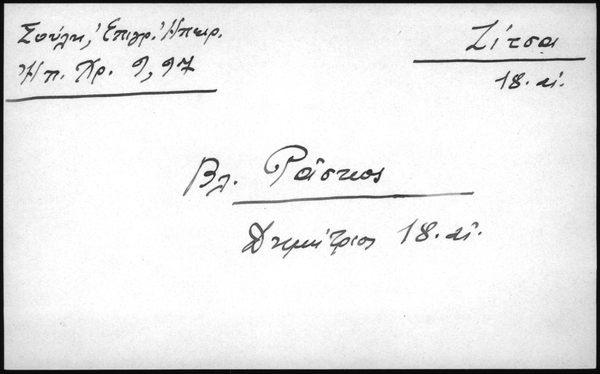 Σούλη, Ἐπιγρ. Ἠπειρ.
Ἠπ. Χρ. 9, 97
Ζίτσα
18. αἰ.
Βλ. Ράσκος
Δημήτριος 18. αἰ.